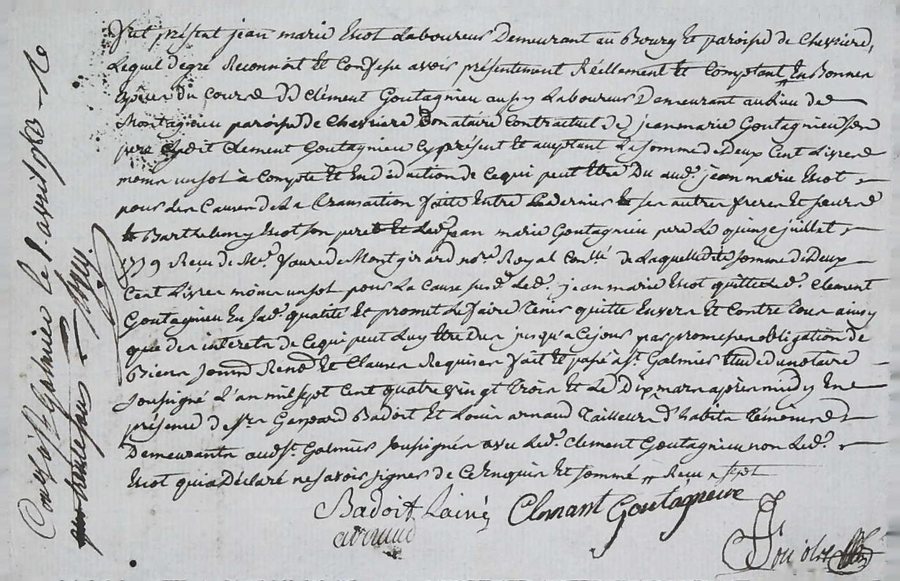 Fut présent jean marie Escot Laboureur Demeurant au Bourg et paroisse de Chevriere,
Lequel de gré Reconnoit et Confesse avoir présentement Réellement et Comptant En Bonnes
Espèces du Cours De Clément Goutagnieu aussy Laboureur Demeurant au Lieu de
Montagnieu paroisse de Chevriere Donataire Contractuel de jean marie Goutagnieu son
pere Ledit Clement Goutagnieu Cy présent et acceptant La somme de Deux Cent Livres
moins un sol à Compte et En Déduction de Ce qui peut Etre Du aud. jean marie Escot
pour Les Causes de La transaction faite Entre Ledernier et ses autres freres et soeurs
et Barthelemy Escot son pere et Led. jean marie Goutagnieu pere Le quinze juillet
1779 Reçu de Me. faure de Montgirard nore. Royal De Laquelle dite somme de Deux
Cent Livres moins un sol pour La Cause susd. Led. jean marie Escot quitte Led. Clement
Goutagnieu En sad. qualité Et promet Le faire tenir quitte Envers et Contre Tous ainsy
que des interets de Ce qui peut Luy Etre Du jusqu'a Ce jour par promesse obligation de
Biens Renon. Et Clauses Requises fait Et passé a St. Galmier Etude du notaire
soussigné L'an mil sept Cent quatre vingt Trois Et Le Dix mars après midy En
présence de Sr. Gaspard Badoit Et Louis arnaud Tailleur d'habits Témoins
Demeurants aud. St. Galmier soussignés avec Led. Clement Goutagnieu non Led.
Escot qui a Déclaré ne savoir signer de Ce Enquis Et sommé Reçu sept
Badoit Lainé Clemant Goutagneux
arnaud
Conlé à St. Galmier le avril 1783